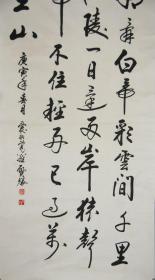 朝辞白帝彩雲間千里
陵一日還兩岸猿聲
不住輕舟已過萬
重山
庚寅年春月